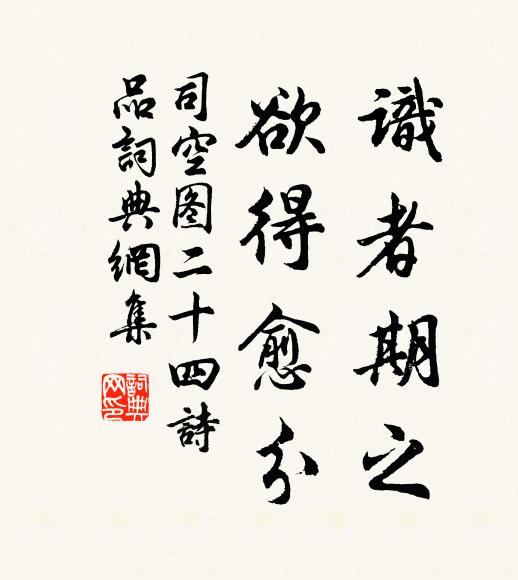 識者期之
欲得愈分
司空图二十四詩
品詞典網集
詞典
网印